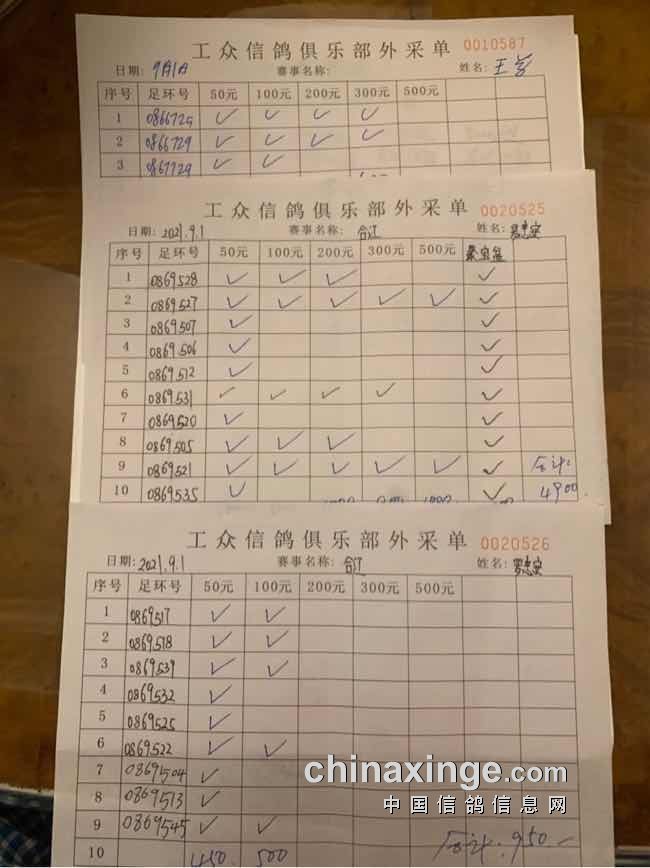 工众信鸽俱乐部外采单 0010587
日期: 9月1日 赛事名称: 姓名: 王
序号 足环号 50元 100元 200元 300元 500元
1 0866725 ✓ ✓ ✓ ✓
2 0866729 ✓ ✓ ✓ ✓
3 ✓ ✓
工众信鸽俱乐部外采单 0020525
日期: 2021.9.1 赛事名称: 合江 姓名:
序号 足环号 50元 100元 200元 300元 500元 聚宝盆
1 0869528 ✓ ✓ ✓ ✓
2 0869527 ✓ ✓ ✓ ✓ ✓ ✓
3 0869507 ✓ ✓
4 0869506 ✓ ✓
5 0869512 ✓ ✓
6 0869531 ✓ ✓ ✓ ✓ ✓
7 0869520 ✓ ✓
8 0869505 ✓ ✓ ✓ ✓
9 0869521 ✓ ✓ ✓ ✓ ✓ ✓ 合计:
10 0869535 ✓ ✓ 4900.
工众信鸽俱乐部外采单 0020526
日期: 2021.9.1 赛事名称: 合江 姓名:
序号 足环号 50元 100元 200元 300元 500元
1 0869517 ✓ ✓
2 0869518 ✓ ✓
3 0869539 ✓ ✓
4 0869532 ✓
5 0869525 ✓
6 0869522 ✓ ✓
7 0869504 ✓
8 0869513 ✓
9 0869545 ✓ ✓
10 450. 500 合计: 950.
chinaxinge.com
中国信鸽信息网